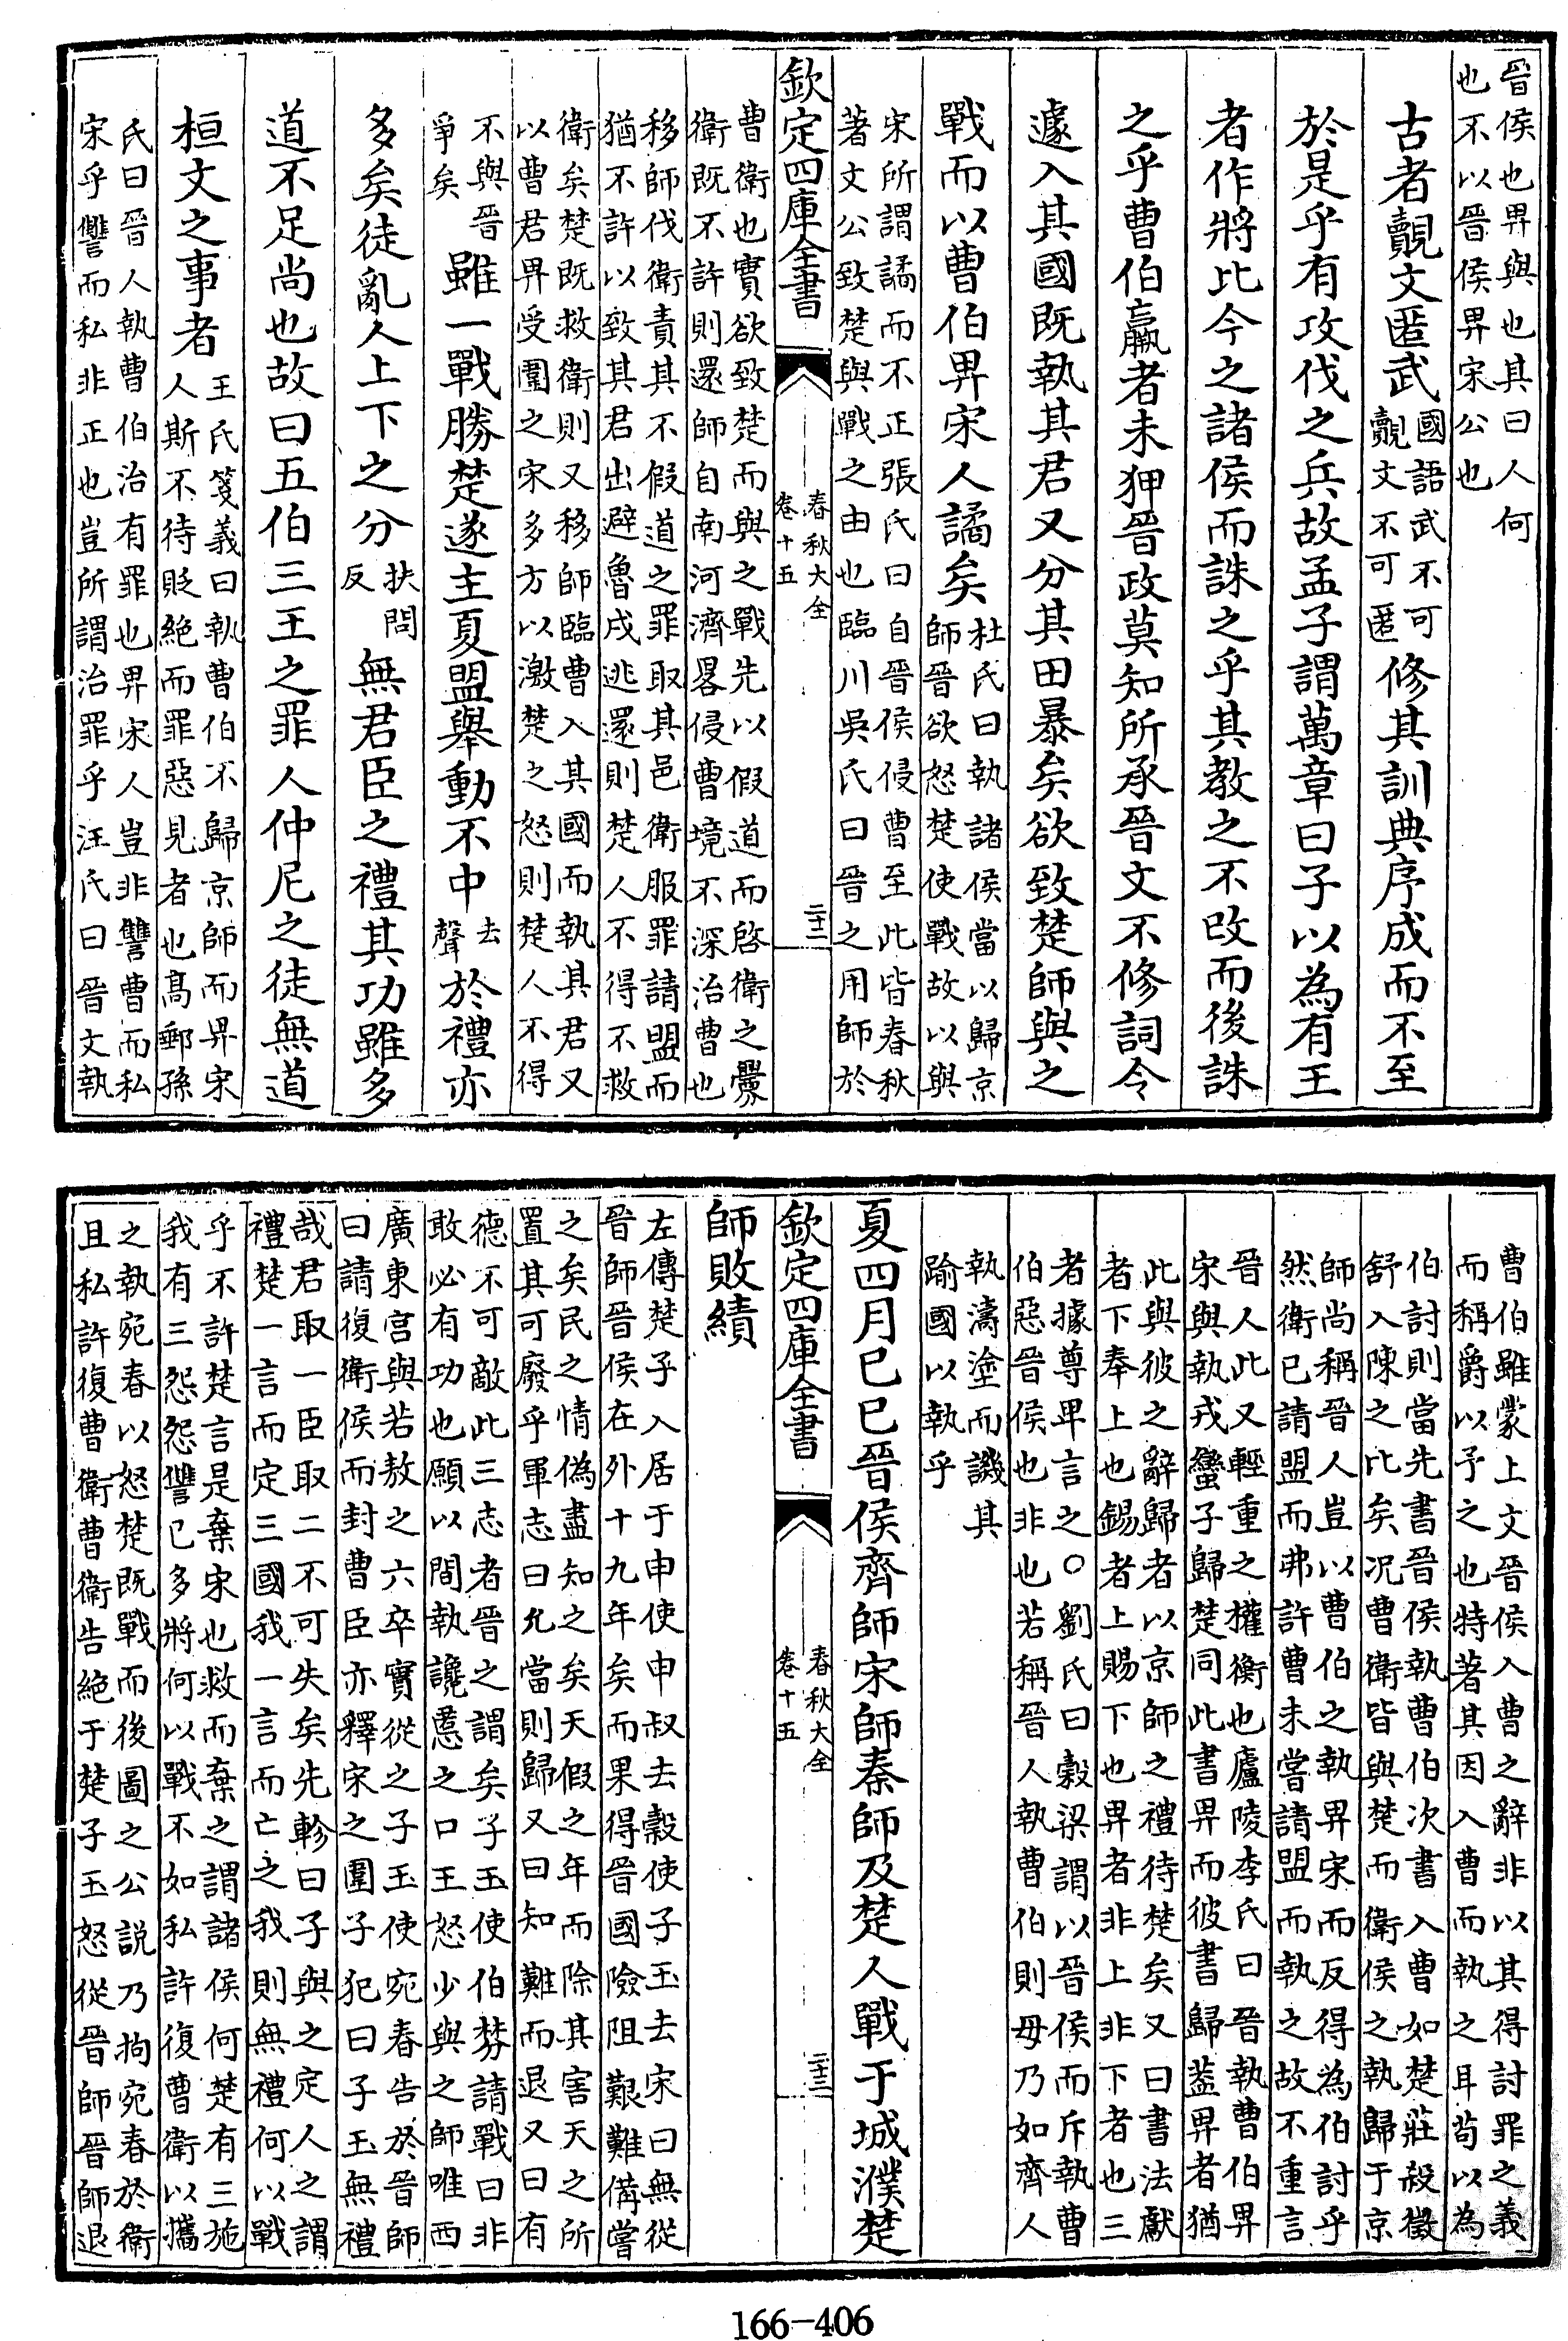 晉侯也畀與也其曰人何
也不以晉侯畀宋公也
古者覿文匿武國語武不可
覿文不可匿修其訓典序成而不至
於是乎有攻伐之兵故孟子謂萬章曰子以為有王
者作將比今之諸侯而誅之乎其教之不改而後誅
之乎曹伯羸者未狎晉政莫知所承晉文不修詞令
遽入其國既執其君又分其田暴矣欲致楚師與之
戰而以曹伯畀宋人譎矣杜氏曰執諸侯當以歸京
師晉欲怒楚使戰故以與
宋所謂譎而不正張氏曰自晉侯侵曹至此皆春秋
著文公致楚與戰之由也臨川吳氏曰晉之用師於
欽定四庫全書
春秋大全
卷十五
二十二
曹衛也實欲致楚而與之戰先以假道而啓衛之釁
衛既不許則還師自南河濟畧侵曹境不深治曹也
移師伐衛責其不假道之罪取其邑衛服罪請盟而
猶不許以致其君出避魯戍逃還則楚人不得不救
衛矣楚既救衛則又移師臨曹入其國而執其君又
以曹君畀受圍之宋多方以激楚之怒則楚人不得
不與晉
爭矣雖一戰勝楚遂主夏盟舉動不中去
聲於禮亦
多矣徒亂人上下之分扶問
反無君臣之禮其功雖多
道不足尚也故曰五伯三王之罪人仲尼之徒無道
桓文之事者王氏箋義曰執曹伯不歸京師而畀宋
人斯不待貶絶而罪惡見者也髙郵孫
氏曰晉人執曹伯治有罪也畀宋人豈非讐曹而私
宋乎讐而私非正也豈所謂治罪乎汪氏曰晉文執
曹伯雖蒙上文晉侯入曹之辭非以其得討罪之義
而稱爵以予之也特著其因入曹而執之耳茍以為
伯討則當先書晉侯執曹伯次書入曹如楚莊殺徵
舒入陳之比矣况曹衛皆與楚而衛侯之執歸于京
師尚稱晉人豈以曹伯之執畀宋而反得為伯討乎
然衛已請盟而弗許曹未嘗請盟而執之故不重言
晉人此又輕重之權衡也廬陵李氏曰晉執曹伯畀
宋與執戎蠻子歸楚同此書畀而彼書歸葢畀者猶
此與彼之辭歸者以京師之禮待楚矣又曰書法獻
者下奉上也錫者上賜下也畀者非上非下者也三
者據尊卑言之〇劉氏曰榖梁謂以晉侯而斥執曹
伯惡晉侯也非也若稱晉人執曹伯則毋乃如齊人
執濤塗而譏其
踰國以執乎
夏四月己巳晉侯齊師宋師秦師及楚人戰于城濮楚
欽定四庫全書
春秋大全
卷十五
二十三
師敗績
左傳楚子入居于申使申叔去榖使子玉去宋曰無從
晉師晉侯在外十九年矣而果得晉國險阻艱難備嘗
之矣民之情偽盡知之矣天假之年而除其害天之所
置其可廢乎軍志曰允當則歸又曰知難而退又曰有
德不可敵此三志者晉之謂矣子玉使伯棼請戰曰非
敢必有功也願以間執讒慝之口王怒少與之師唯西
廣東宫與若敖之六卒實從之子玉使宛春告於晉師
曰請復衛侯而封曹臣亦釋宋之圍子犯曰子玉無禮
哉君取一臣取二不可失矣先軫曰子與之定人之謂
禮楚一言而定三國我一言而亡之我則無禮何以戰
乎不許楚言是棄宋也救而棄之謂諸侯何楚有三施
我有三怨怨讐已多將何以戰不如私許復曹衛以攜
之執宛春以怒楚既戰而後圖之公説乃拘宛春於衛
且私許復曹衛曹衛告絶于楚子玉怒從晉師晉師退
166-406